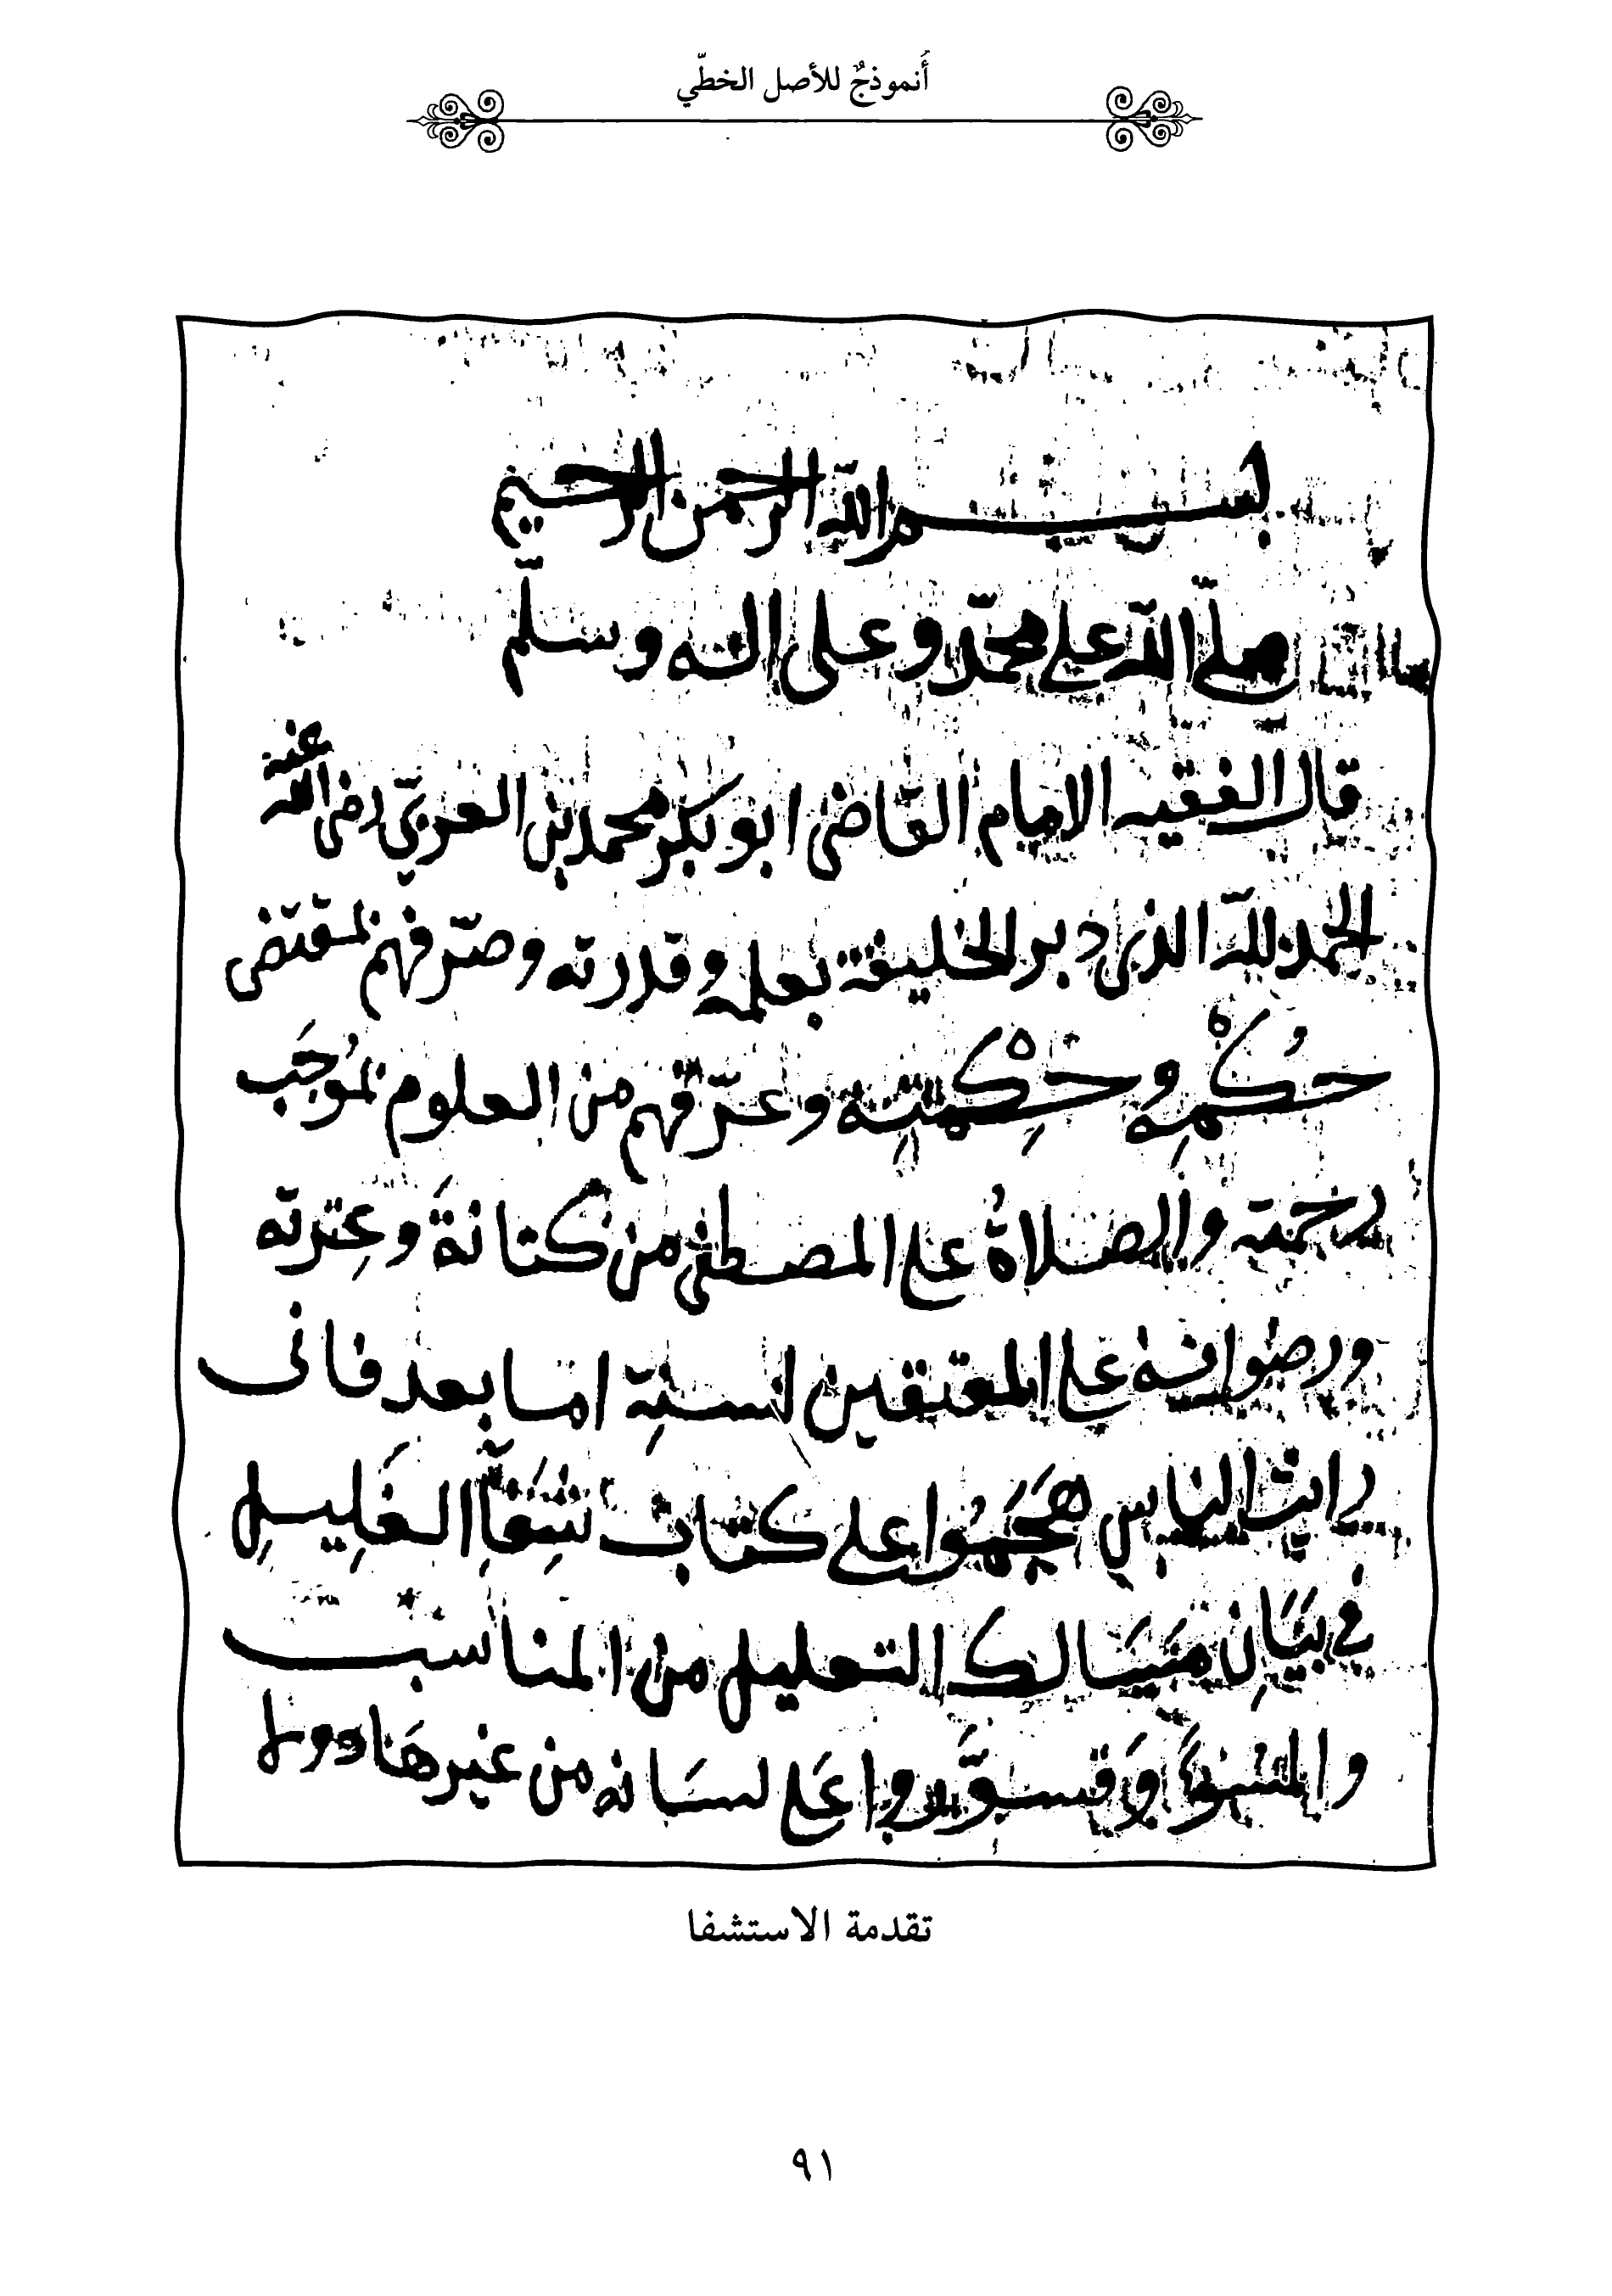 أَنموذجٌ للأصل الخطّي
بسم الله الرحمن الرحيم
صلّى الله على محمّد وعلى اله وسلّم
قال الفقيه الامام القاضى ابو بكر محمد بن العربيّ رضى الله عنه
الحمد لله الذى دبر الخليفة بعلمه وقدرته وصرّفهم بمقتضى
حُكْمِه وحِكْمتِه وعرّفهم من العلوم بمُوجَب
رحمته والصلاةُ على المصطفى من كنانةَ وعِترته
ورضوانه على المعتقين لسنتِه امّا بعد فانى
رايت الناس هَجَمُوا على كتاب شِفَآءِ الغَلِيلِ
في بَيَانِ مَسَالك التعليل من المناسب
والمشبه وَتسوَّروا عَلى لسَانه من غير هَاد
تقدمة الاستشفا
٩١